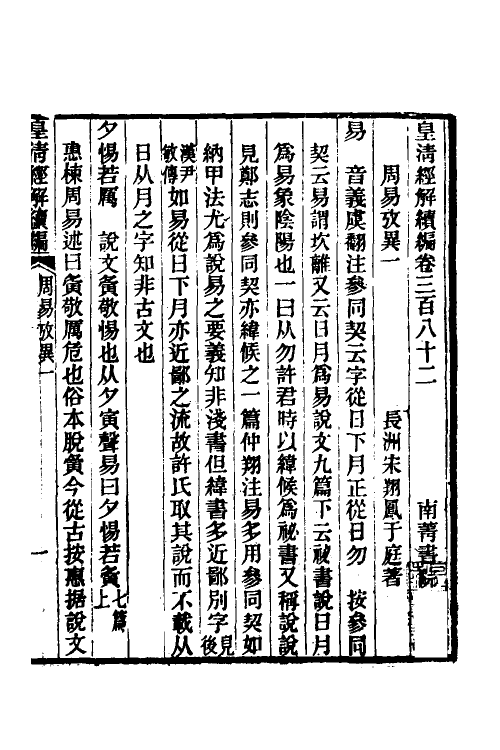 皇清經解續編卷三百八十二 南菁書院
周易攷異一 長洲宋翔鳳于庭著
易 音義虞翻注參同契云字從日下月正從日勿 按參同
契云易謂坎離又云日月爲易說文九篇下云祕書說日月
爲易象陰陽也一曰从勿許君時以緯候爲祕書又稱說說
見鄭志則參同契亦緯候之一篇仲翔注易多用參同契如
納甲法尤爲說易之要義知非淺書但緯書多近鄙別字見後
漢尹敏傳如易從日下月亦近鄙之流故許氏取其說而不載从
日从月之字知非古文也
夕惕若厲 說文夤敬惕也从夕寅聲易曰夕惕若夤七篇上
惠棟周易述曰夤敬厲危也俗本脫夤今從古按惠据說文
皇清經解續編 周易攷異一 一